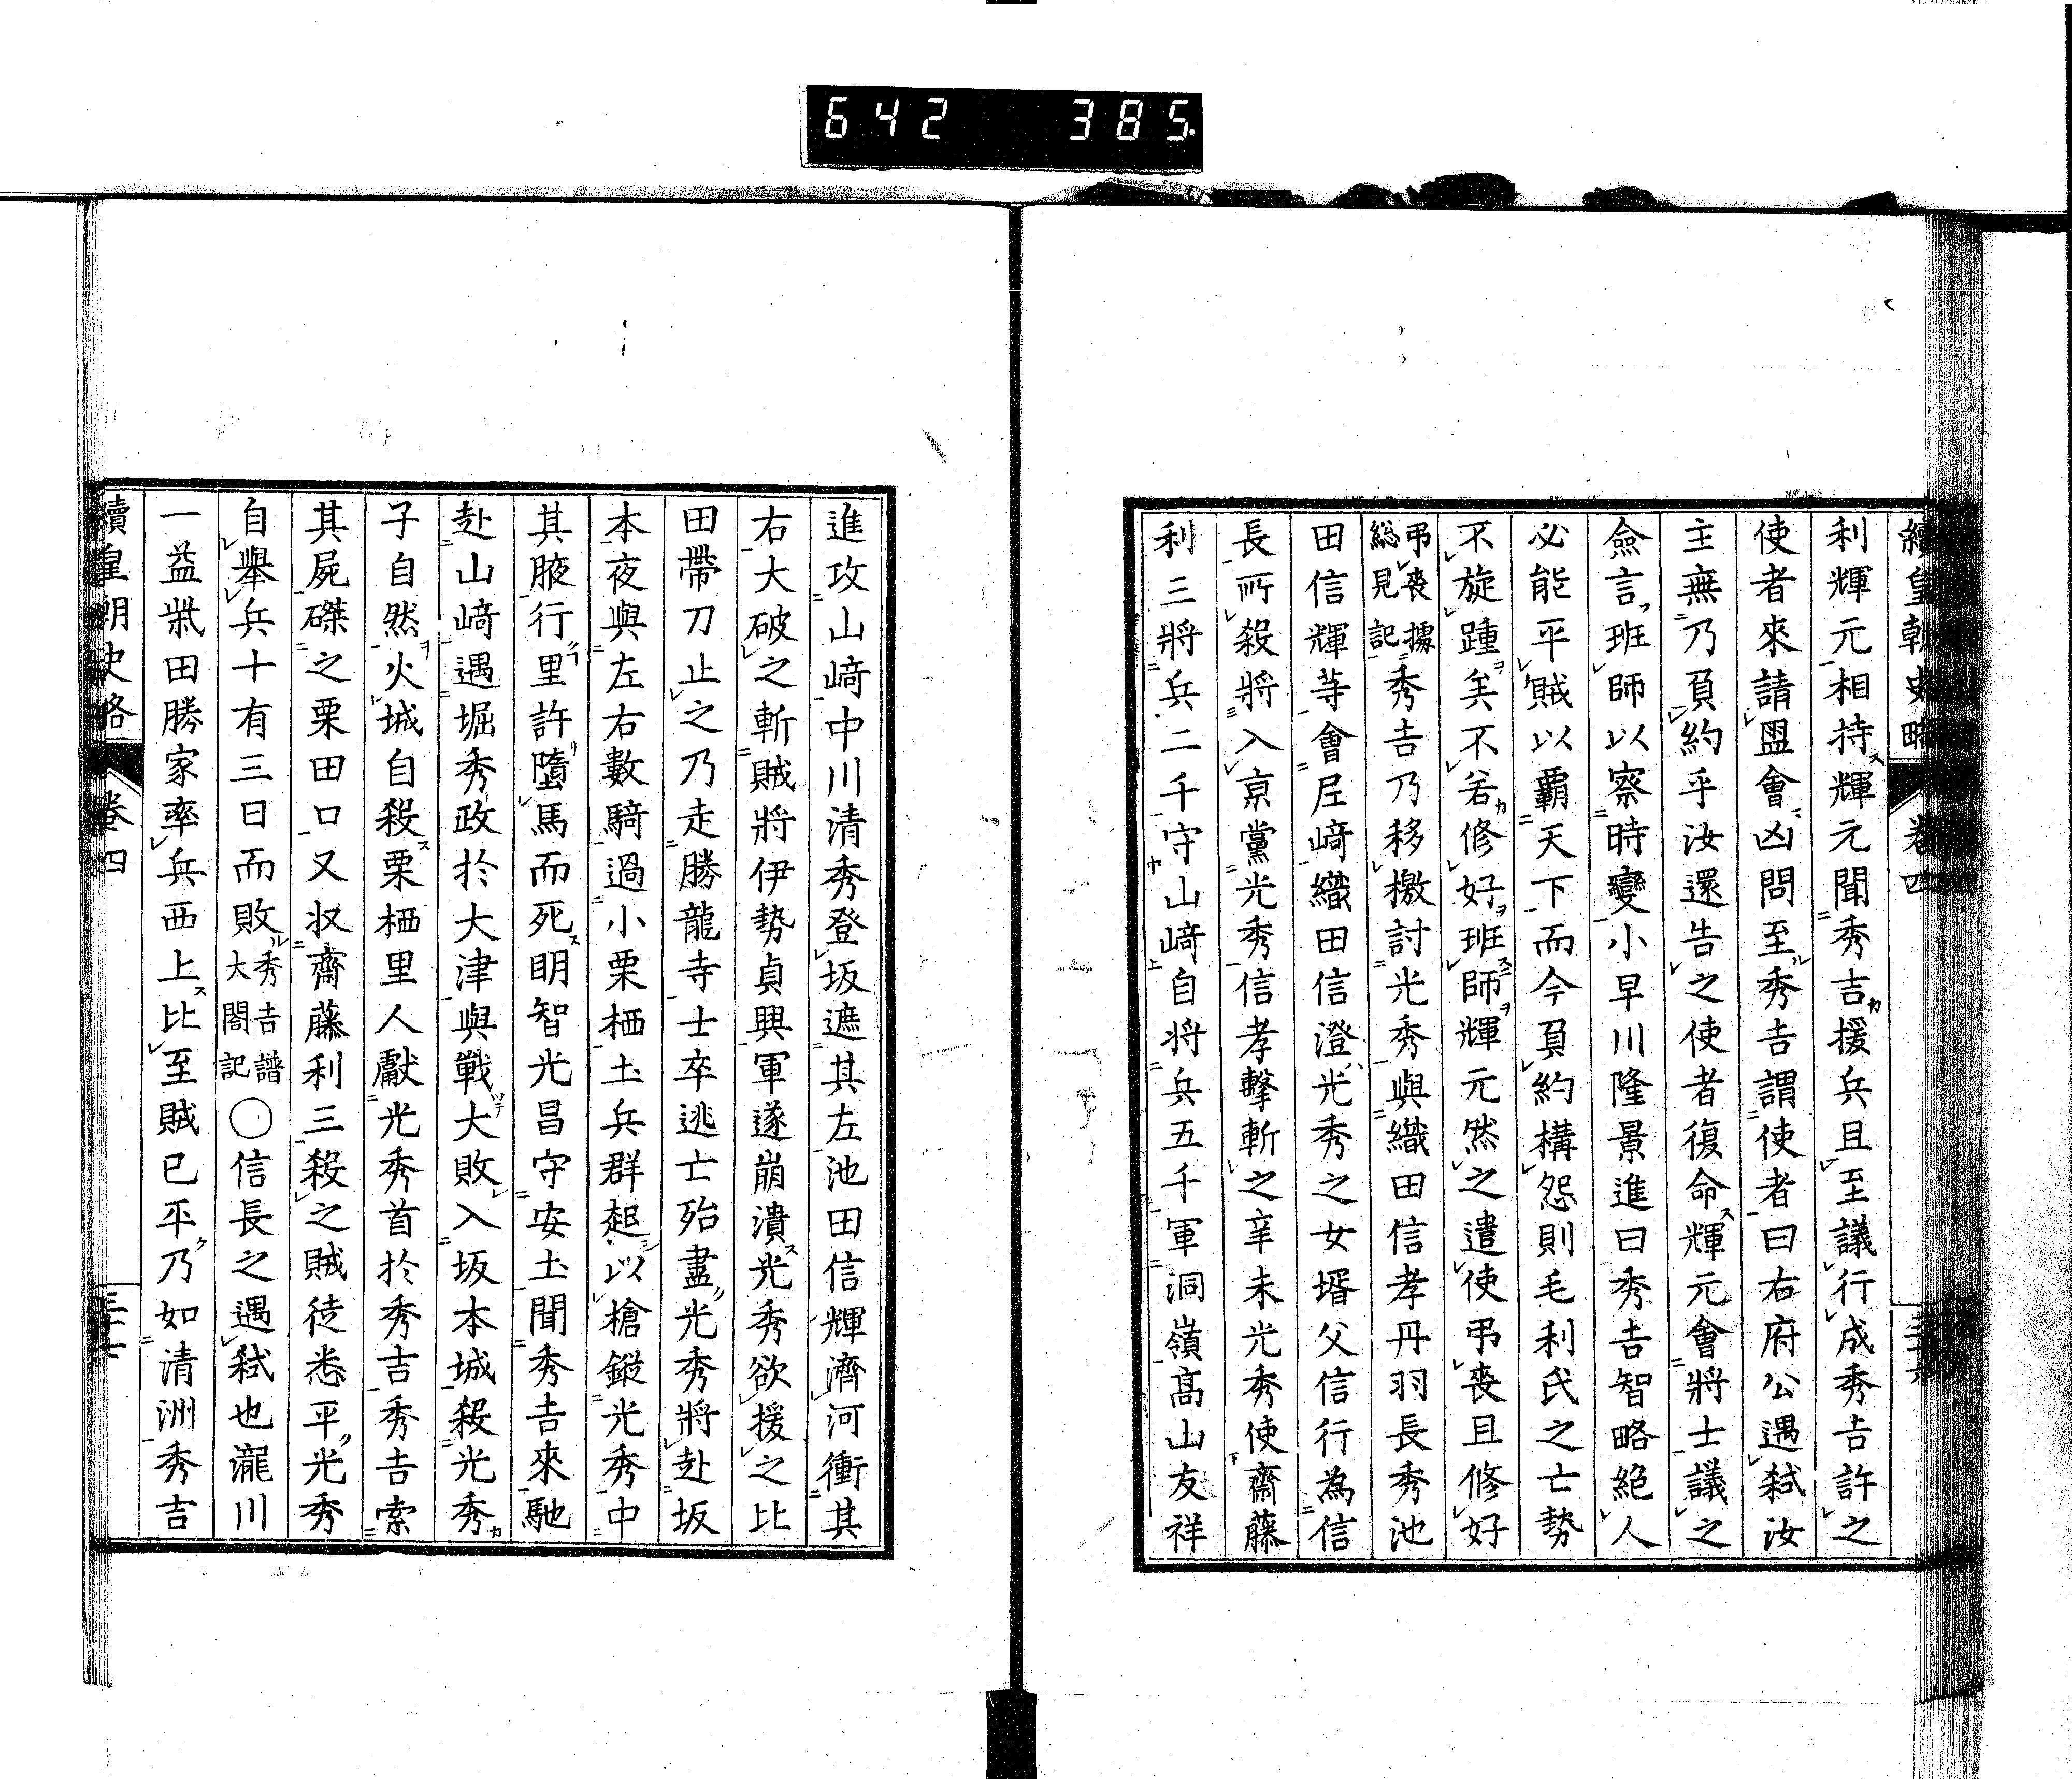 642 385.
續皇朝史略 卷四 三十六
利輝元相持輝元聞秀吉援兵且至議行成秀吉許之
使者來請盟會凶問至秀吉謂使者曰右府公遇弑汝
主無乃負約乎汝還告之使者復命輝元會將士議之
僉言班師以察時變小早川隆景進曰秀吉智略絕人
必能平賊以霸天下而今負約構怨則毛利氏之亡勢
不旋踵矣不若修好班師輝元然之遣使弔喪且修好
弔喪據總見記秀吉乃移檄討光秀與織田信孝丹羽長秀池
田信輝等會尼﨑織田信澄光秀之女壻父信行為信
長所殺將入京黨光秀信孝擊斬之辛未光秀使齋藤
利三將兵二千守山﨑自將兵五千軍洞嶺高山友祥
進攻山﨑中川清秀登坂遮其左池田信輝濟河衝其
右大破之斬賊將伊勢貞興軍遂崩潰光秀欲援之比
田帶刀止之乃走勝龍寺士卒逃亡殆盡光秀將赴坂
本夜與左右數騎過小栗栖土兵群起以槍鏦光秀中
其腋行里許墮馬而死明智光昌守安土聞秀吉來馳
赴山﨑遇堀秀政於大津與戰大敗入坂本城殺光秀
子自然火城自殺栗栖里人獻光秀首於秀吉秀吉索
其屍磔之栗田口又収齋藤利三殺之賊徒悉平光秀
自舉兵十有三日而敗秀吉譜大閤記〇信長之遇弑也瀧川
一益柴田勝家率兵西上比至賊已平乃如清洲秀吉
續皇朝史略 卷四 三十七